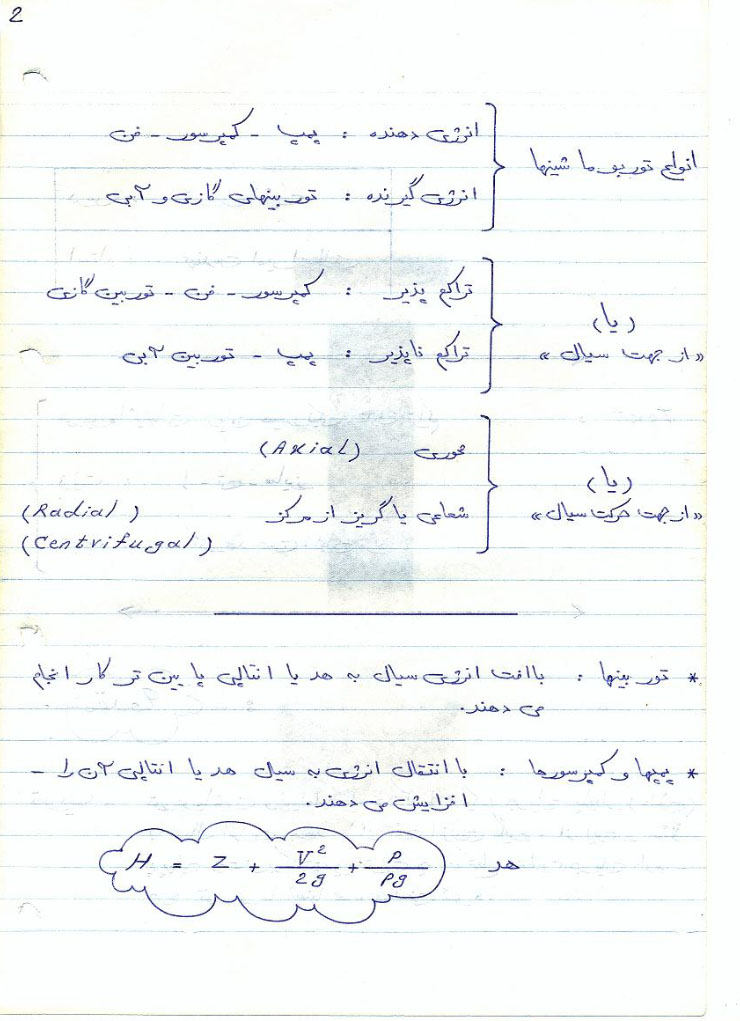 2
انواع توربو ماشینها
انرژی دهنده : پمپ - کمپرسور - فن
انرژی گیرنده : توربینهای گازی و آبی
(یا)
«از جهت سیال»
تراکم پذیر : کمپرسور - فن - توربین گازی
تراکم ناپذیر : پمپ - توربین آبی
(یا)
«از جهت حرکت سیال»
محوری (Axial)
شعاعی یا گریز از مرکز (Radial)
(Centrifugal)
* توربینها : با افت انرژی سیال به هد یا انتالپی پایین تر کار انجام
می دهند.
* پمپها و کمپرسورها : با انتقال انرژی به سیال هد یا انتالپی آن را -
افزایش می دهند.
هد H = Z + V²/2g + P/ρg